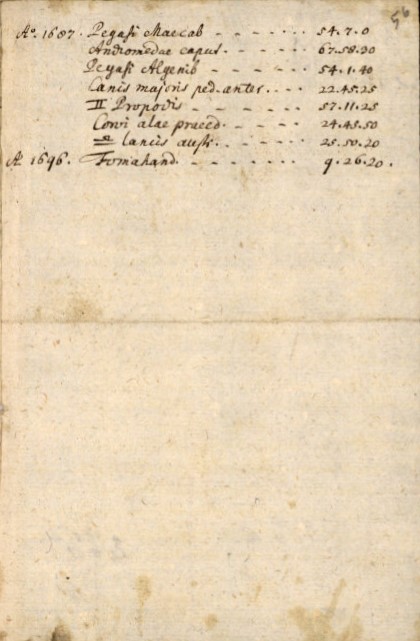 56
Aº. 1687. Pegasi Marcab - - - - - - - 54.7.0
Andromedae caput. - - - - - - 67.58.30
Pegasi Algenib - - - - - - 54.1.40
Canis majoris ped. anter. . - - - 22.45.25
♊ Propodis - - - - - - 57.11.25
Corvi alae praeced. - - - - 24.45.50
♎ lancis austr. . - - - - - - 25.50.20
Aº 1696. Fomahand. - - - - - - - 9.26.20.